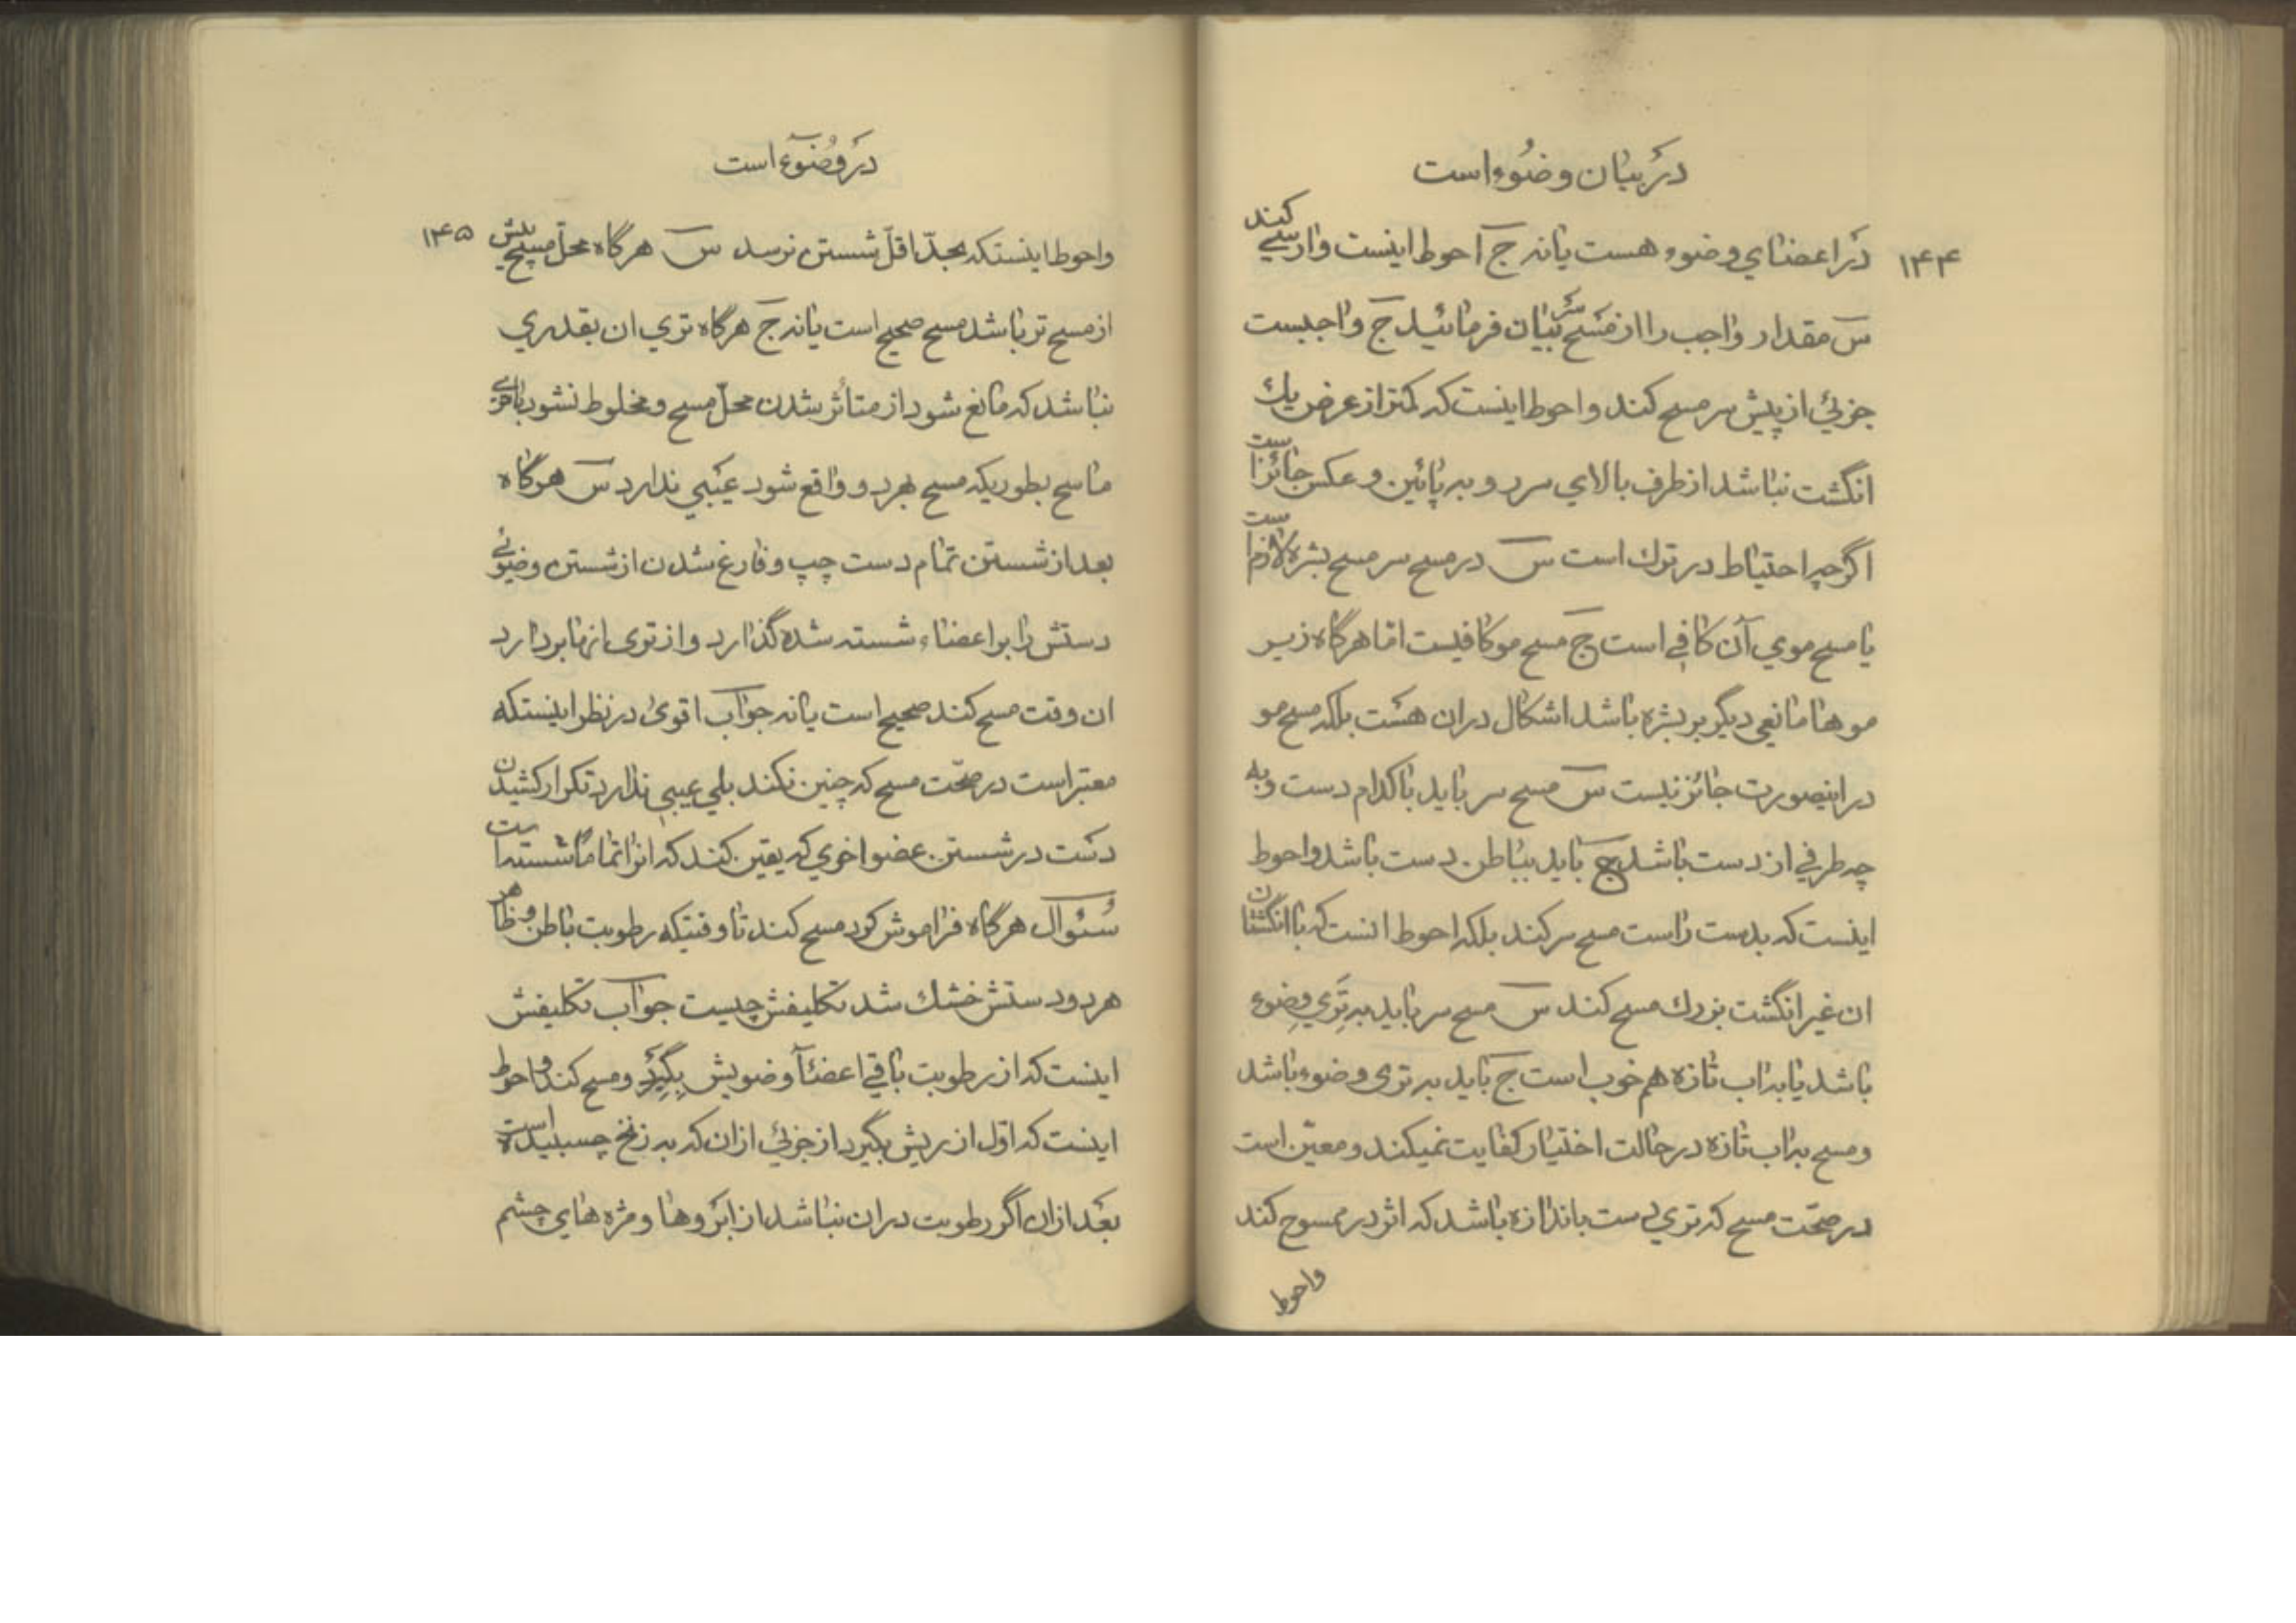 در بیان وضوء است
۱۴۴
در اعضای وضوء هست یا نه ج احوط اینست وارسی کند
س مقدار واجب را از مسح سر بیان فرمائید ج واجبست
جزئی از پیش سر مسح کند و احوط اینست که کمتر از عرض یك
انگشت نباشد از طرف بالای سر رو به پائین و عکس جائز است
اگرچه احتیاط در ترك است س در مسح سر مسح بشره لازم است
یا مسح موی آن کافی است ج مسح مو کافیست اما هرگاه زیر
موها مانعی دیگر بر بشره باشد اشکال در ان هست بلکه مسح مو
در اینصورت جائز نیست س مسح سر باید با کدام دست و به
چه طرفی از دست باشد ج باید بباطن دست باشد و احوط
اینست که بدست راست مسح سر کند بلکه احوط انست که با انگشتان
ان غیر انگشت بزرك مسح کند س مسح سر باید به تری وضوء
باشد یا به اب تازه هم خوب است ج باید به تری وضوء باشد
و مسح به اب تازه در حالت اختیار کفایت نمیکند و معین است
در صحّت مسح که تری دست باندازه باشد که اثر در ممسوح کند
واحوط
در وضوء است
۱۴۵
و احوط اینستکه بحدّ اقلّ شستن نرسد س هرگاه محلّ مسح پیش
از مسح تر باشد مسح صحیح است یا نه ج هرگاه تری ان بقدری
نباشد که مانع شود از متأثر شدن محلّ مسح و مخلوط نشود با تری
ماسح بطوریکه مسح بهر دو واقع شود عیبی ندارد س هرگاه
بعد از شستن تمام دست چپ و فارغ شدن از شستن وضوئی
دستش را بر اعضاء شسته شده گذارد و از تری انها بردارد
ان وقت مسح کند صحیح است یا نه جواب اقوی در نظر اینستکه
معتبر است در صحّت مسح که چنین نکند بلی عیبی ندارد تکرار کشیدن
دست در شستن عضو اخری که یقین کند که انرا تماما شسته است
سئوال هرگاه فراموش کرد مسح کند تا وقتیکه رطوبت باطن و ظاهر
هر دو دستش خشك شد تکلیفش چیست جواب تکلیفش
اینست که از رطوبت باقی اعضآ وضویش بگیرد و مسح کند و احوط
اینست که اوّل از ریش بگیرد از جزئی از ان که به زنخ چسبیده است
بعد از ان اگر رطوبت در ان نباشد از ابروها و مژه های چشم